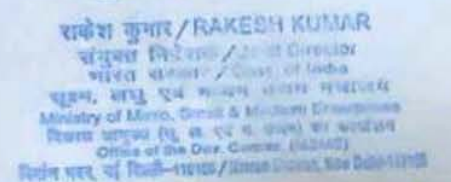 राकेश कुमार/RAKESH KUMAR
संयुक्त निदेशक/Joint Director
भारत सरकार/Govt. of India
सूक्ष्म, लघु एवं मध्यम उद्यम मंत्रालय
Ministry of Micro, Small & Medium Enterprises
विकास आयुक्त (सू. ल. एवं म. उद्यम) का कार्यालय
Office of the Dev. Comm.
निर्माण भवन, नई दिल्ली-110108/Nirman Bhawan, New Delhi-110108